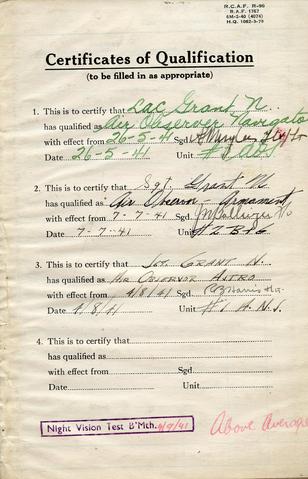 R.C.A.F. R-96
R.A.F. 1767
6M-2-40 (4074)
H.Q. 1062-3-79
44
Certificates of Qualification
(to be filled in as appropriate)
1. This is to certify that LAC. Grant N.
has qualified as Air Observer Navigator
with effect from 26-5-41 Sgd.
Date 26-5-41 Unit
2. This is to certify that Sgt. Grant N
has qualified as "Air Observer - Armament
with effect from 7-7-41 Sgd.
Date 7-7-41 Unit #2 B&G
3. This is to certify that Sgt. GRANT N.
has qualified as AIR OBSERVOR ASTRO
with effect from 4/8/41 Sgd.
Date 4/8/41 Unit #1 A.N.S.
4. This is to certify that
has qualified as
with effect from Sgd.
Date Unit
Night Vision Test B'Mth. 4/9/41
Above Average